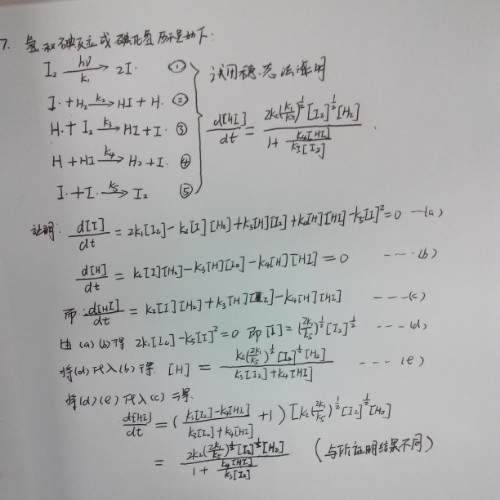 7. 氢和碘反应成碘化氢历程如下:
I₂ —hν/k₁→ 2I· ①
I· + H₂ —k₂→ HI + H· ②
H· + I₂ —k₃→ HI + I· ③
H + HI —k₄→ H₂ + I· ④
I· + I· —k₅→ I₂ ⑤
试用稳态法证明
d[HI]/dt = 2k₂(k₁/k₅)^½[I₂]^½[H₂] / (1 + k₄[HI]/k₃[I₂]) .
证明: d[I]/dt = 2k₁[I₂] - k₂[I][H₂] + k₃[H][I₂] + k₄[H][HI] - k₅[I]² = 0 ---(a)
d[H]/dt = k₂[I][H₂] - k₃[H][I₂] - k₄[H][HI] = 0 ----(b)
而 d[HI]/dt = k₂[I][H₂] + k₃[H][I₂] - k₄[H][HI] ----(c)
由(a)(b)得 2k₁[I₂] - k₅[I]² = 0 即 [I] = (2k₁/k₅)^½[I₂]^½ ---(d)
将(d)代入(b)得 [H] = k₂(2k₁/k₅)^½[I₂]^½[H₂] / (k₃[I₂] + k₄[HI]) ---(e)
将(d)(e)代入(c)得
d[HI]/dt = (k₃[I₂] - k₄[HI] / k₃[I₂] + k₄[HI] + 1)[k₂(2k₁/k₅)^½[I₂]^½[H₂]
= 2k₂(2k₁/k₅)^½[I₂]^½[H₂] / (1 + k₄[HI]/k₃[I₂]) (与所证明结果不同)